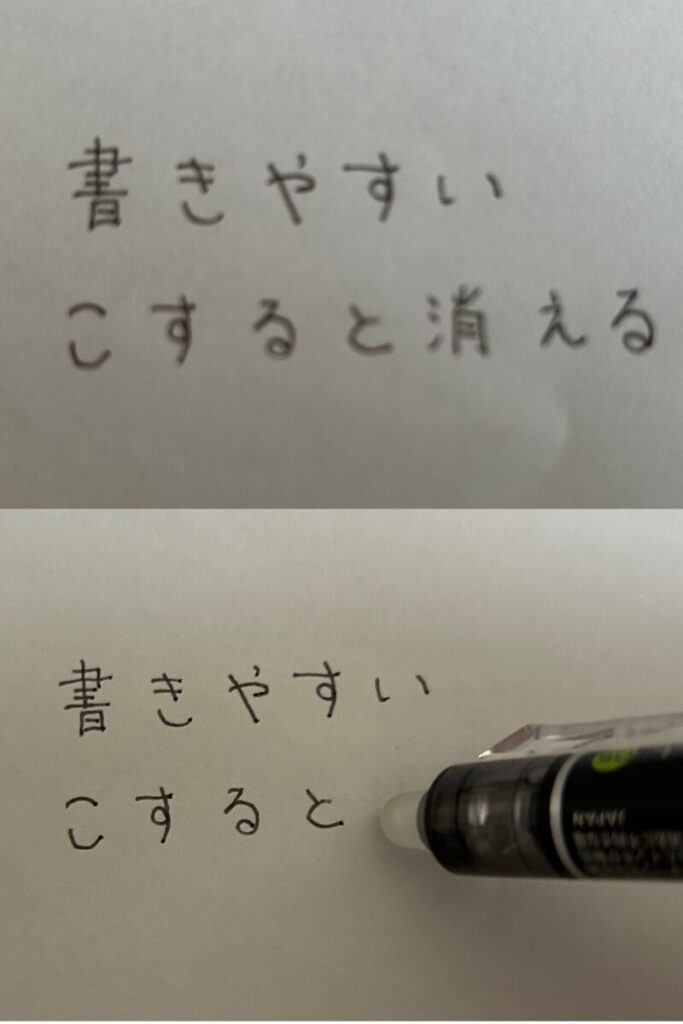 書きやすい
こすると消える
書きやすい
こすると
JAPAN